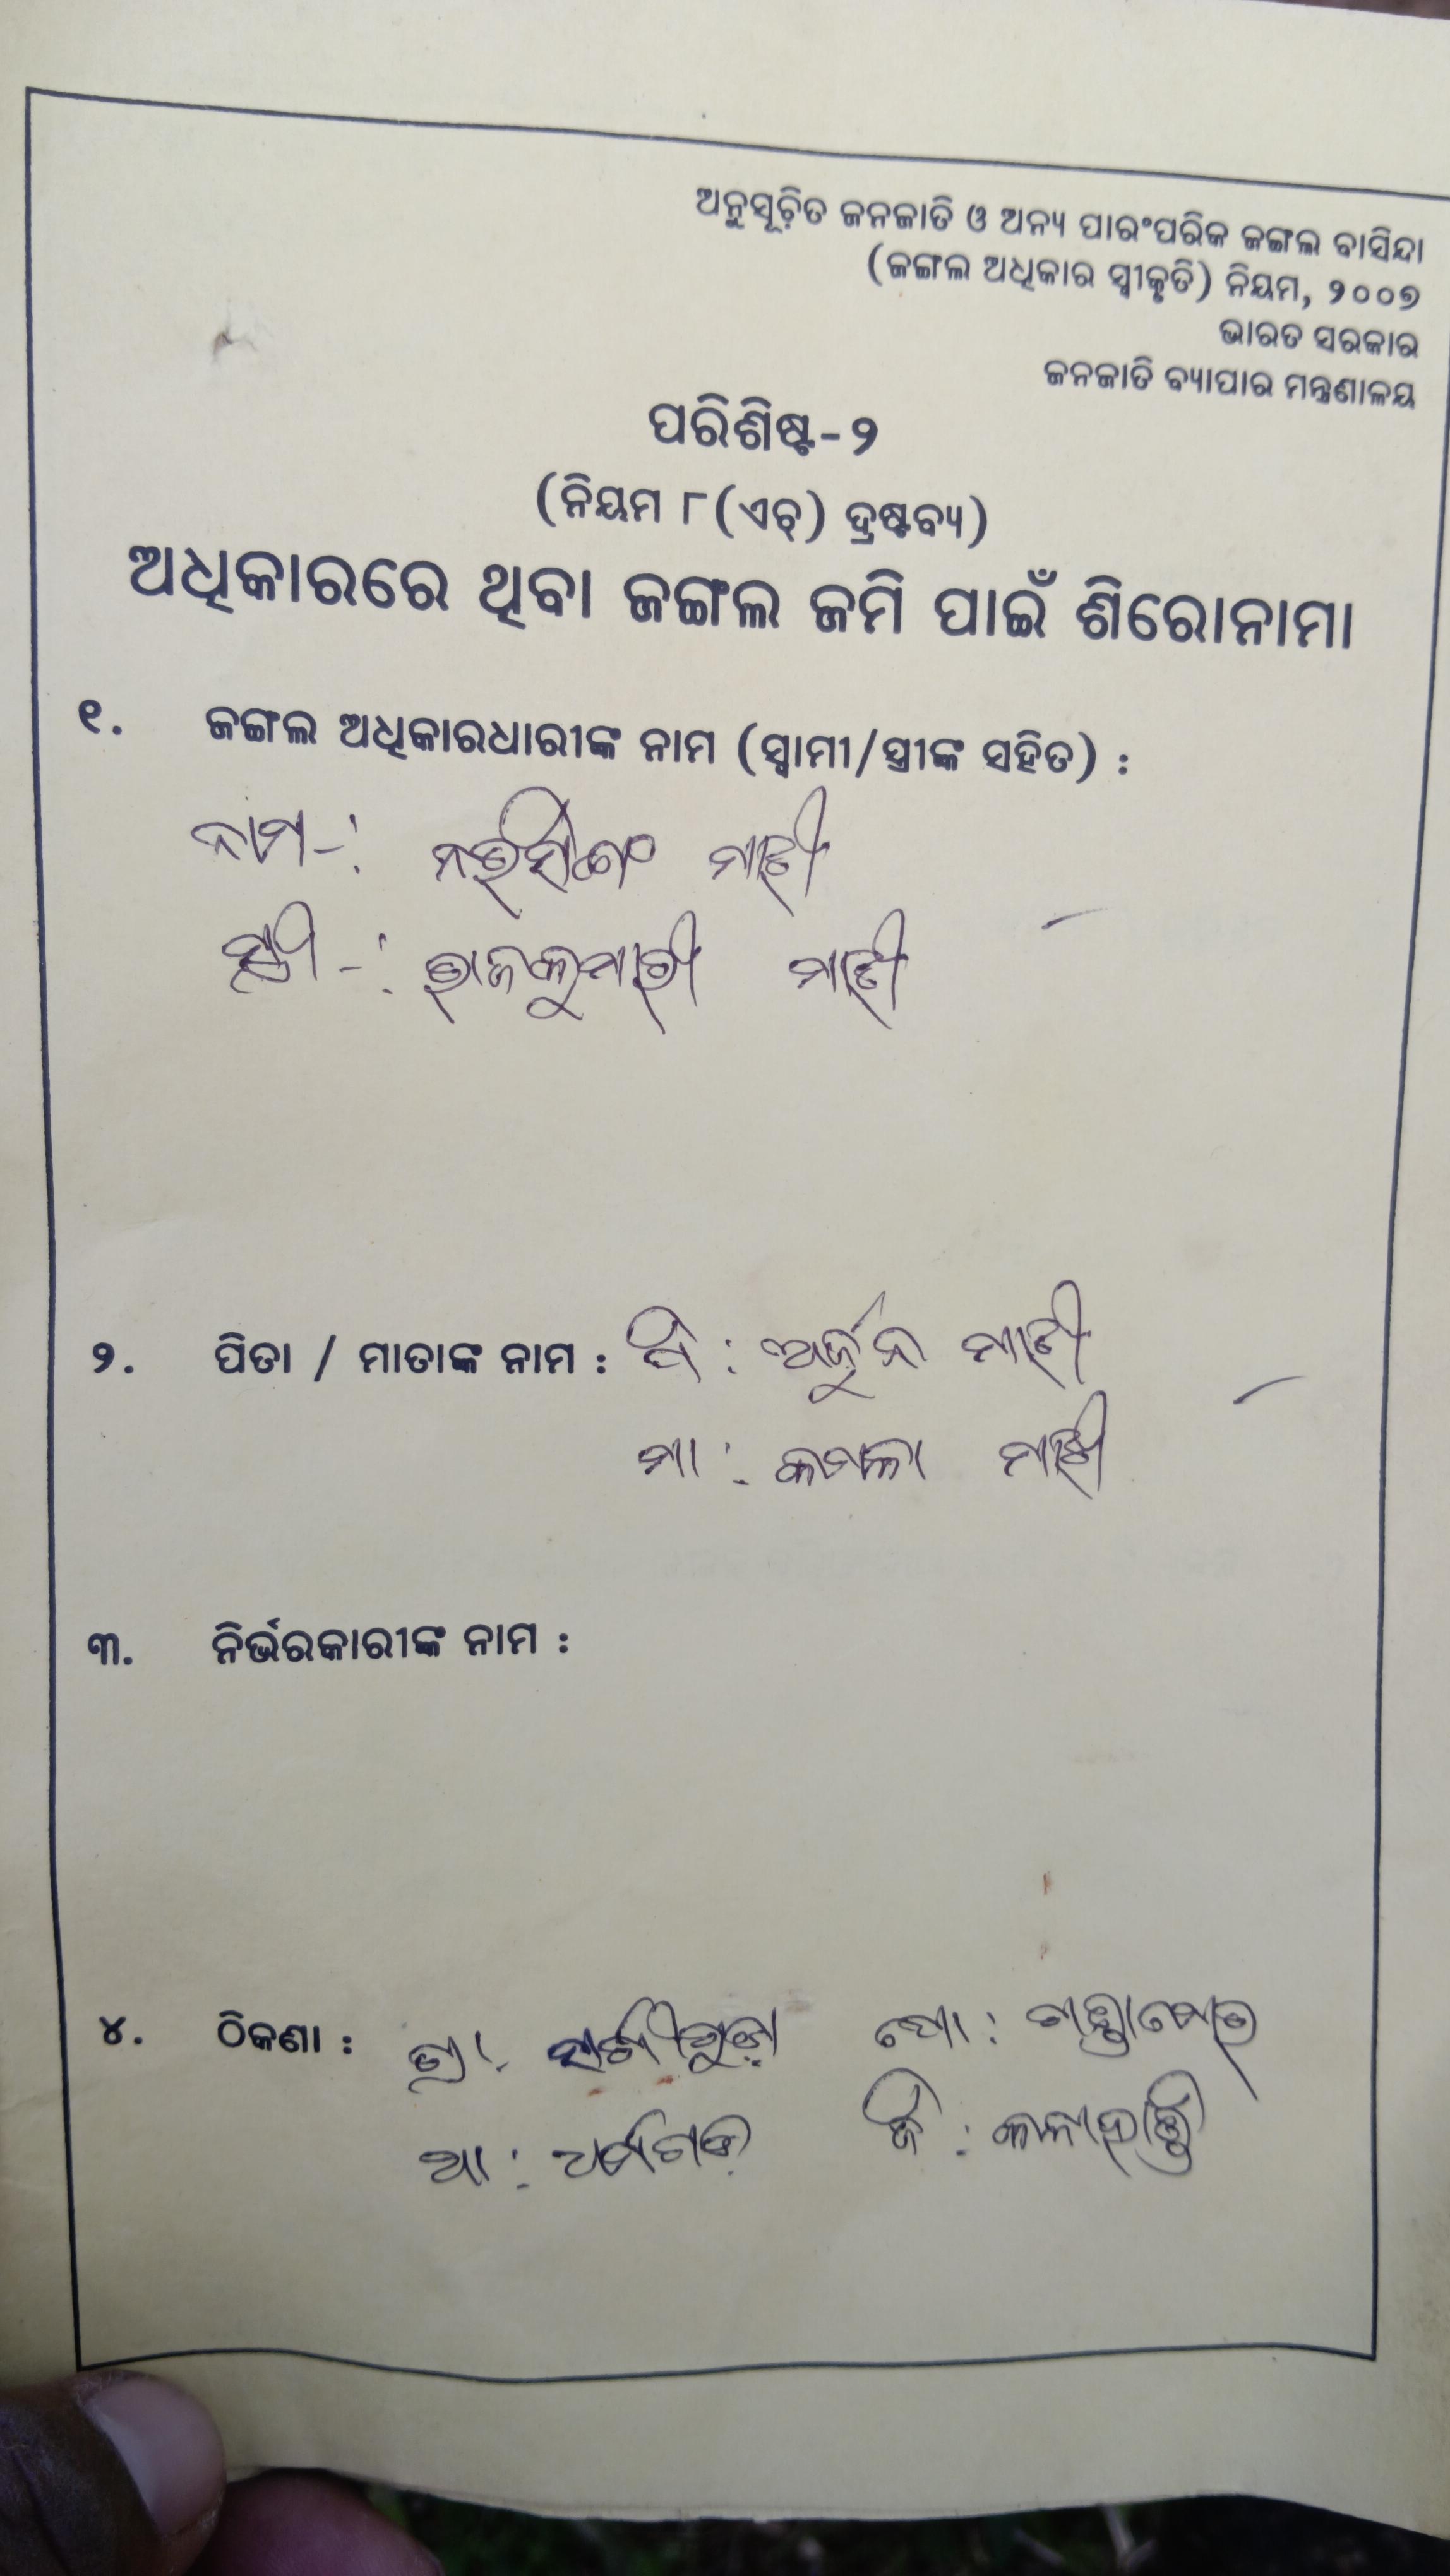 ଅନୁସୂଚିତ ଜନଜାତି ଓ ଅନ୍ୟ ପାରଂପରିକ ଜଙ୍ଗଲ ବାସିନ୍ଦା
(ଜଙ୍ଗଲ ଅଧିକାର ସ୍ୱୀକୃତି) ନିୟମ, ୨୦୦୭
ଭାରତ ସରକାର
ଜନଜାତି ବ୍ୟାପାର ମନ୍ତ୍ରଣାଳୟ
ପରିଶିଷ୍ଟ-୨
(ନିୟମ ୮(ଏଚ୍) ଦ୍ରଷ୍ଟବ୍ୟ)
ଅଧିକାରରେ ଥିବା ଜଙ୍ଗଲ ଜମି ପାଇଁ ଶିରୋନାମା
୧. ଜଙ୍ଗଲ ଅଧିକାରଧାରୀଙ୍କ ନାମ (ସ୍ୱାମୀ/ସ୍ତ୍ରୀଙ୍କ ସହିତ) :
ନାମ-: ମାଝୀ
ସ୍ତ୍ରୀ-: ରାଜକୁମାରୀ ମାଝୀ
୨. ପିତା / ମାତାଙ୍କ ନାମ : ପି : ଅର୍ଜୁନ ମାଝୀ
ମା : କମଳା ମାଝୀ
୩. ନିର୍ଭରକାରୀଙ୍କ ନାମ :
୪. ଠିକଣା : ଗ୍ରା: ପୋ :
ଥା : ଧର୍ମଗଡ଼ ଜି : କଳାହାଣ୍ଡି